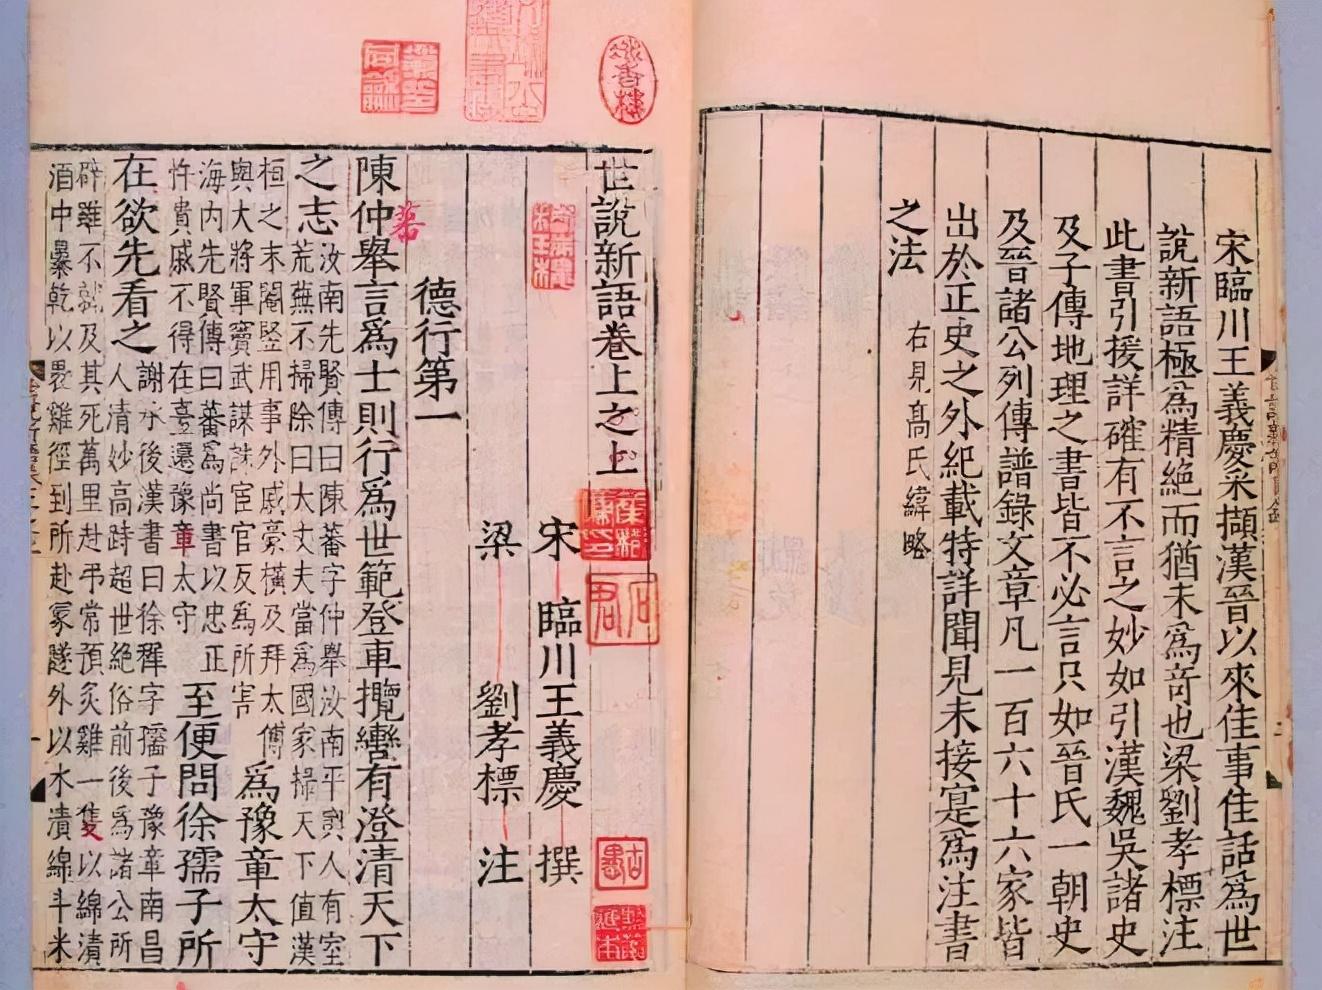 宋臨川王義慶采擷漢晉以來佳事佳話為世
說新語極為精絕而猶未為奇也梁劉孝標注
此書引援詳確有不言之妙如引漢魏吳諸史
及子傳地理之書皆不必言只如晉氏一朝史
及晉諸公列傳譜錄文章凡一百六十六家皆
出於正史之外紀載特詳聞見未接寔為注書
之法 右見高氏緯略
世說新語卷上之上
宋 臨川王義慶 撰
梁 劉孝標 注
德行第一
陳仲舉言為士則行為世範登車攬轡有澄清天下
蕃
之志
汝南先賢傳曰陳蕃字仲舉汝南平輿人有室
荒蕪不掃除曰大丈夫當為國家掃天下值漢
桓之末閹豎用事外戚豪橫及拜太傅
與大將軍竇武謀誅宦官反為所害
為豫章太守
海內先賢傳曰蕃為尚書以忠正
忤貴戚不得在臺遷豫章太守
至便問徐孺子所
在欲先看之
謝承後漢書曰徐穉字孺子豫章南昌
人清妙高跱超世絕俗前後為諸公所
辟雖不就及其死萬里赴弔常預炙雞一隻以綿漬
酒中暴乾以裹雞徑到所赴冢隧外以水漬綿斗米